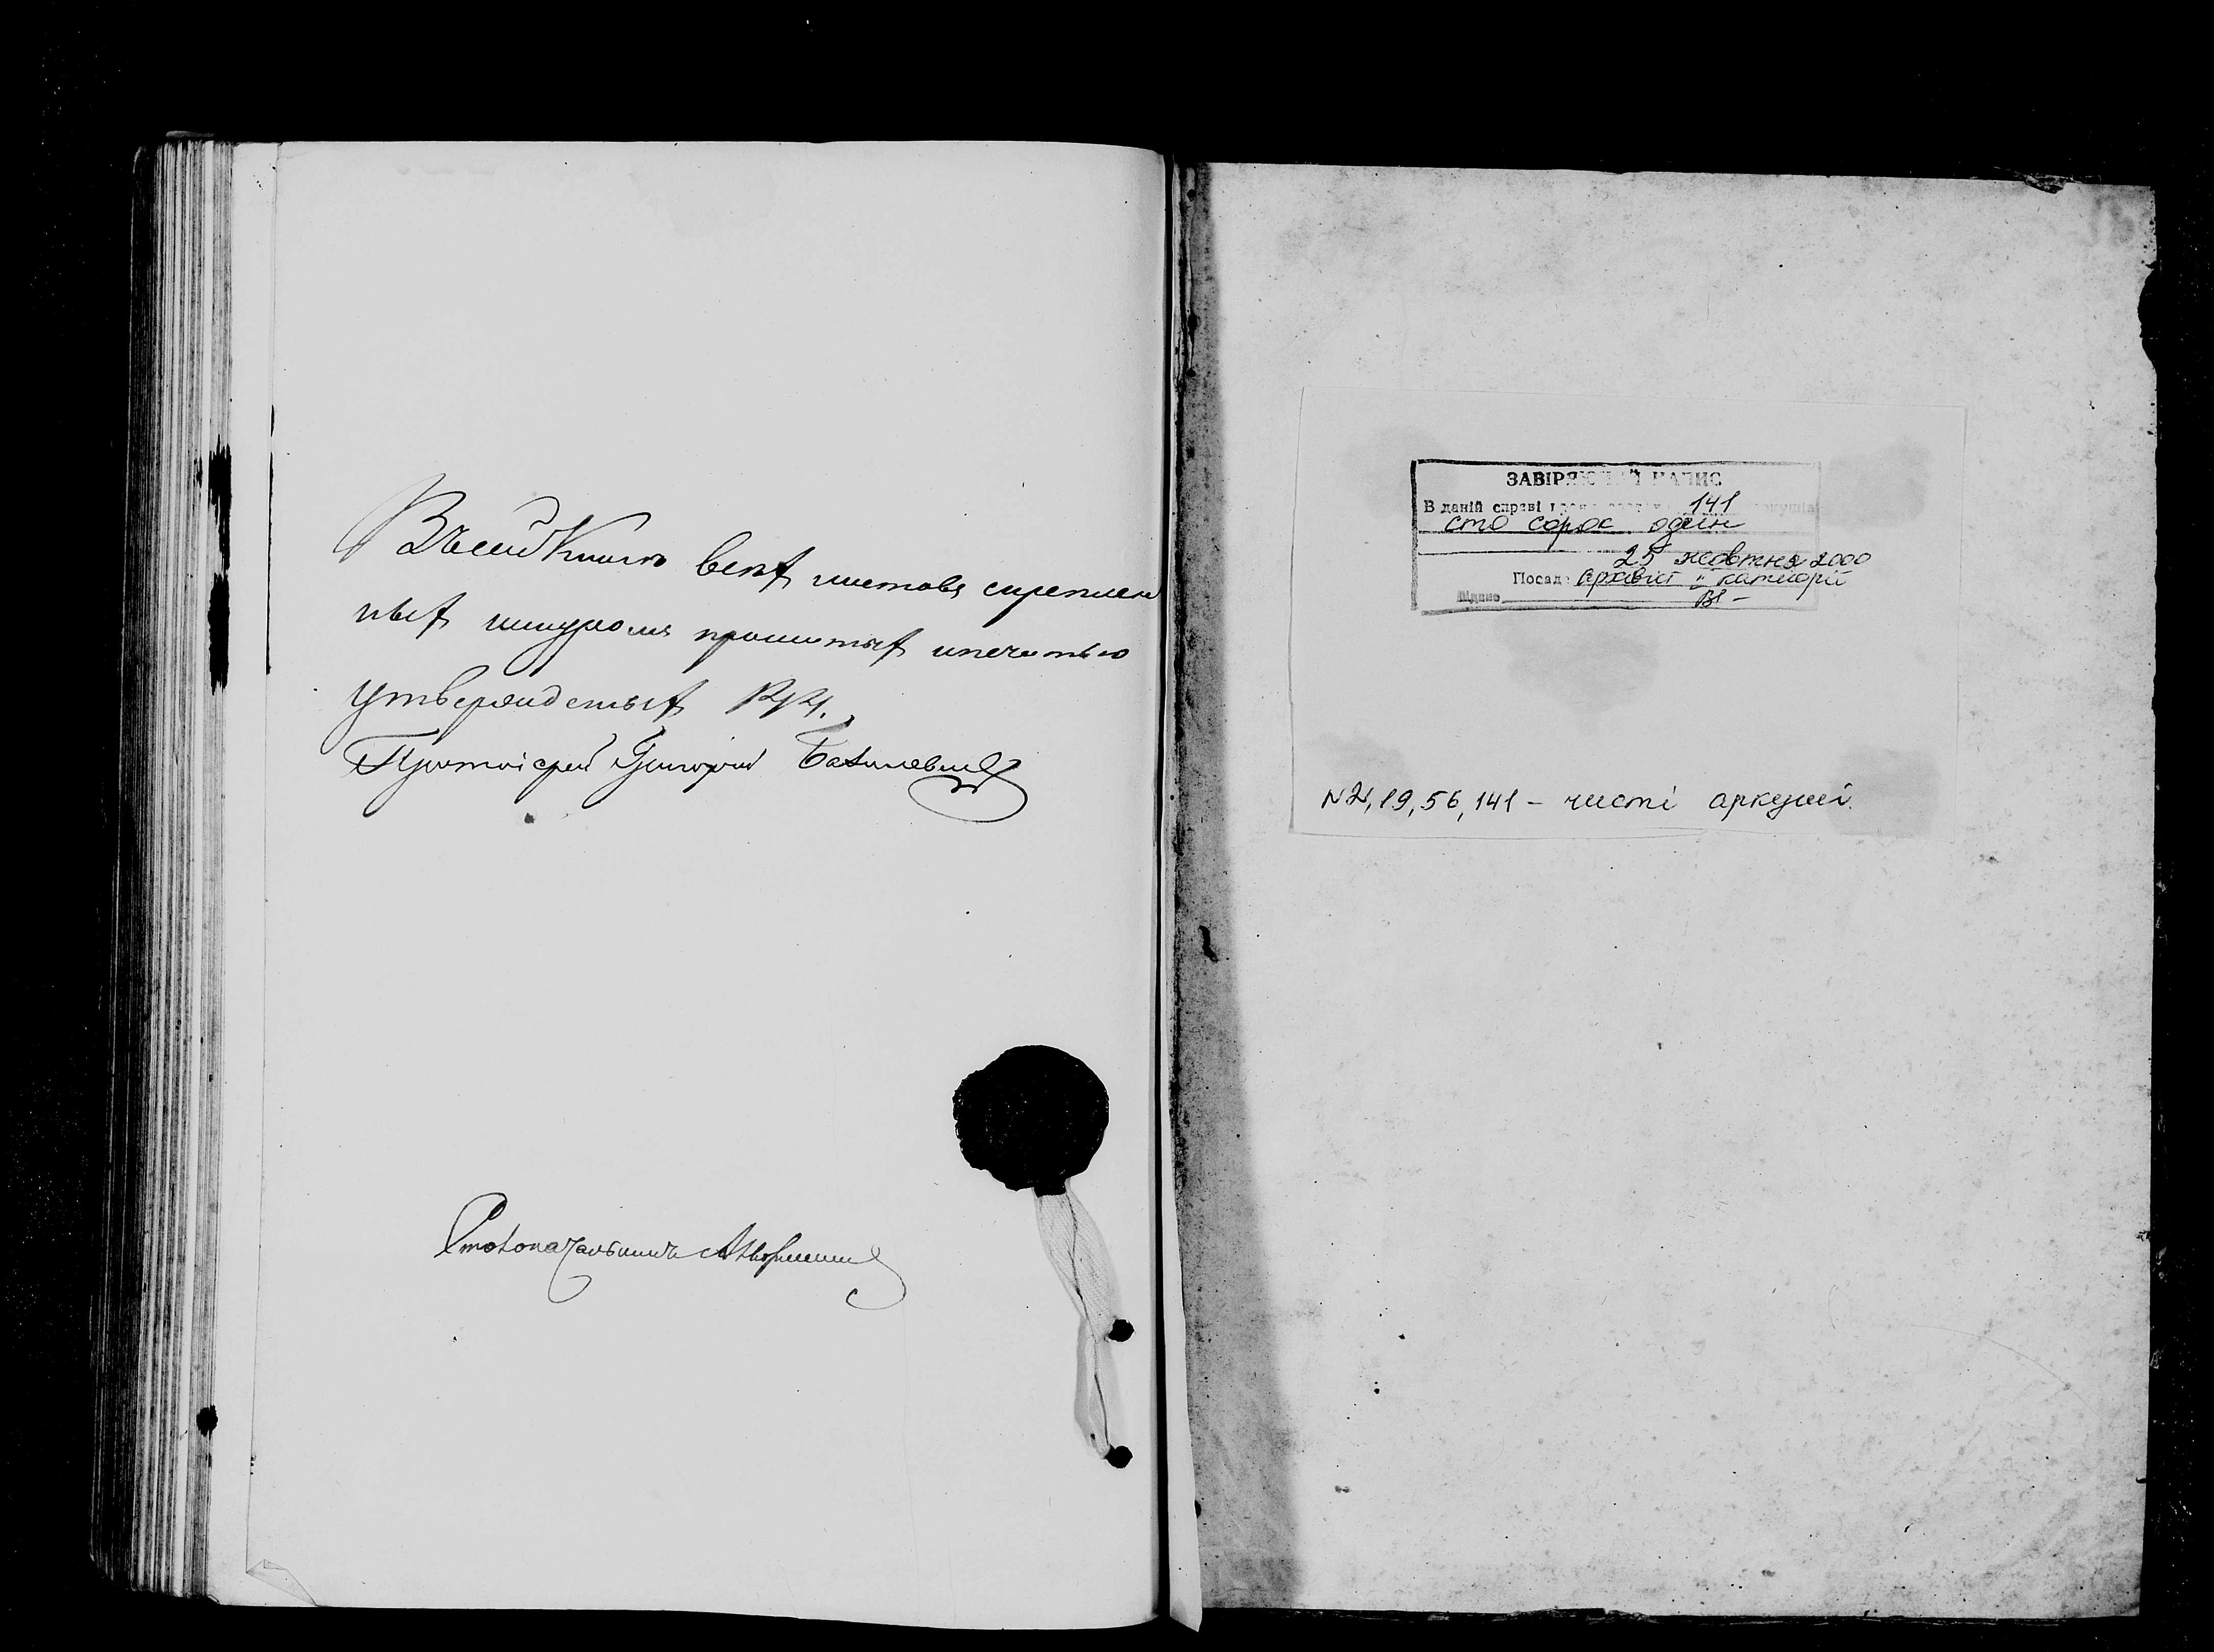 Въ сей Книгѣ всѣхъ листовъ скрѣплен
ныхъ шнуромъ прошитыхъ и печатью
утвержденныхъ
Протоіерей Григорій Базилевичъ
Столоначальникъ
ЗАВІРЯЮЧИЙ НАПИС
В даній справі 141 аркушів
сто сорок один
25 жовтня 2000
Посада архівіст II категорії
Підпис
NN 1, 19, 56, 141 – чисті аркуші.